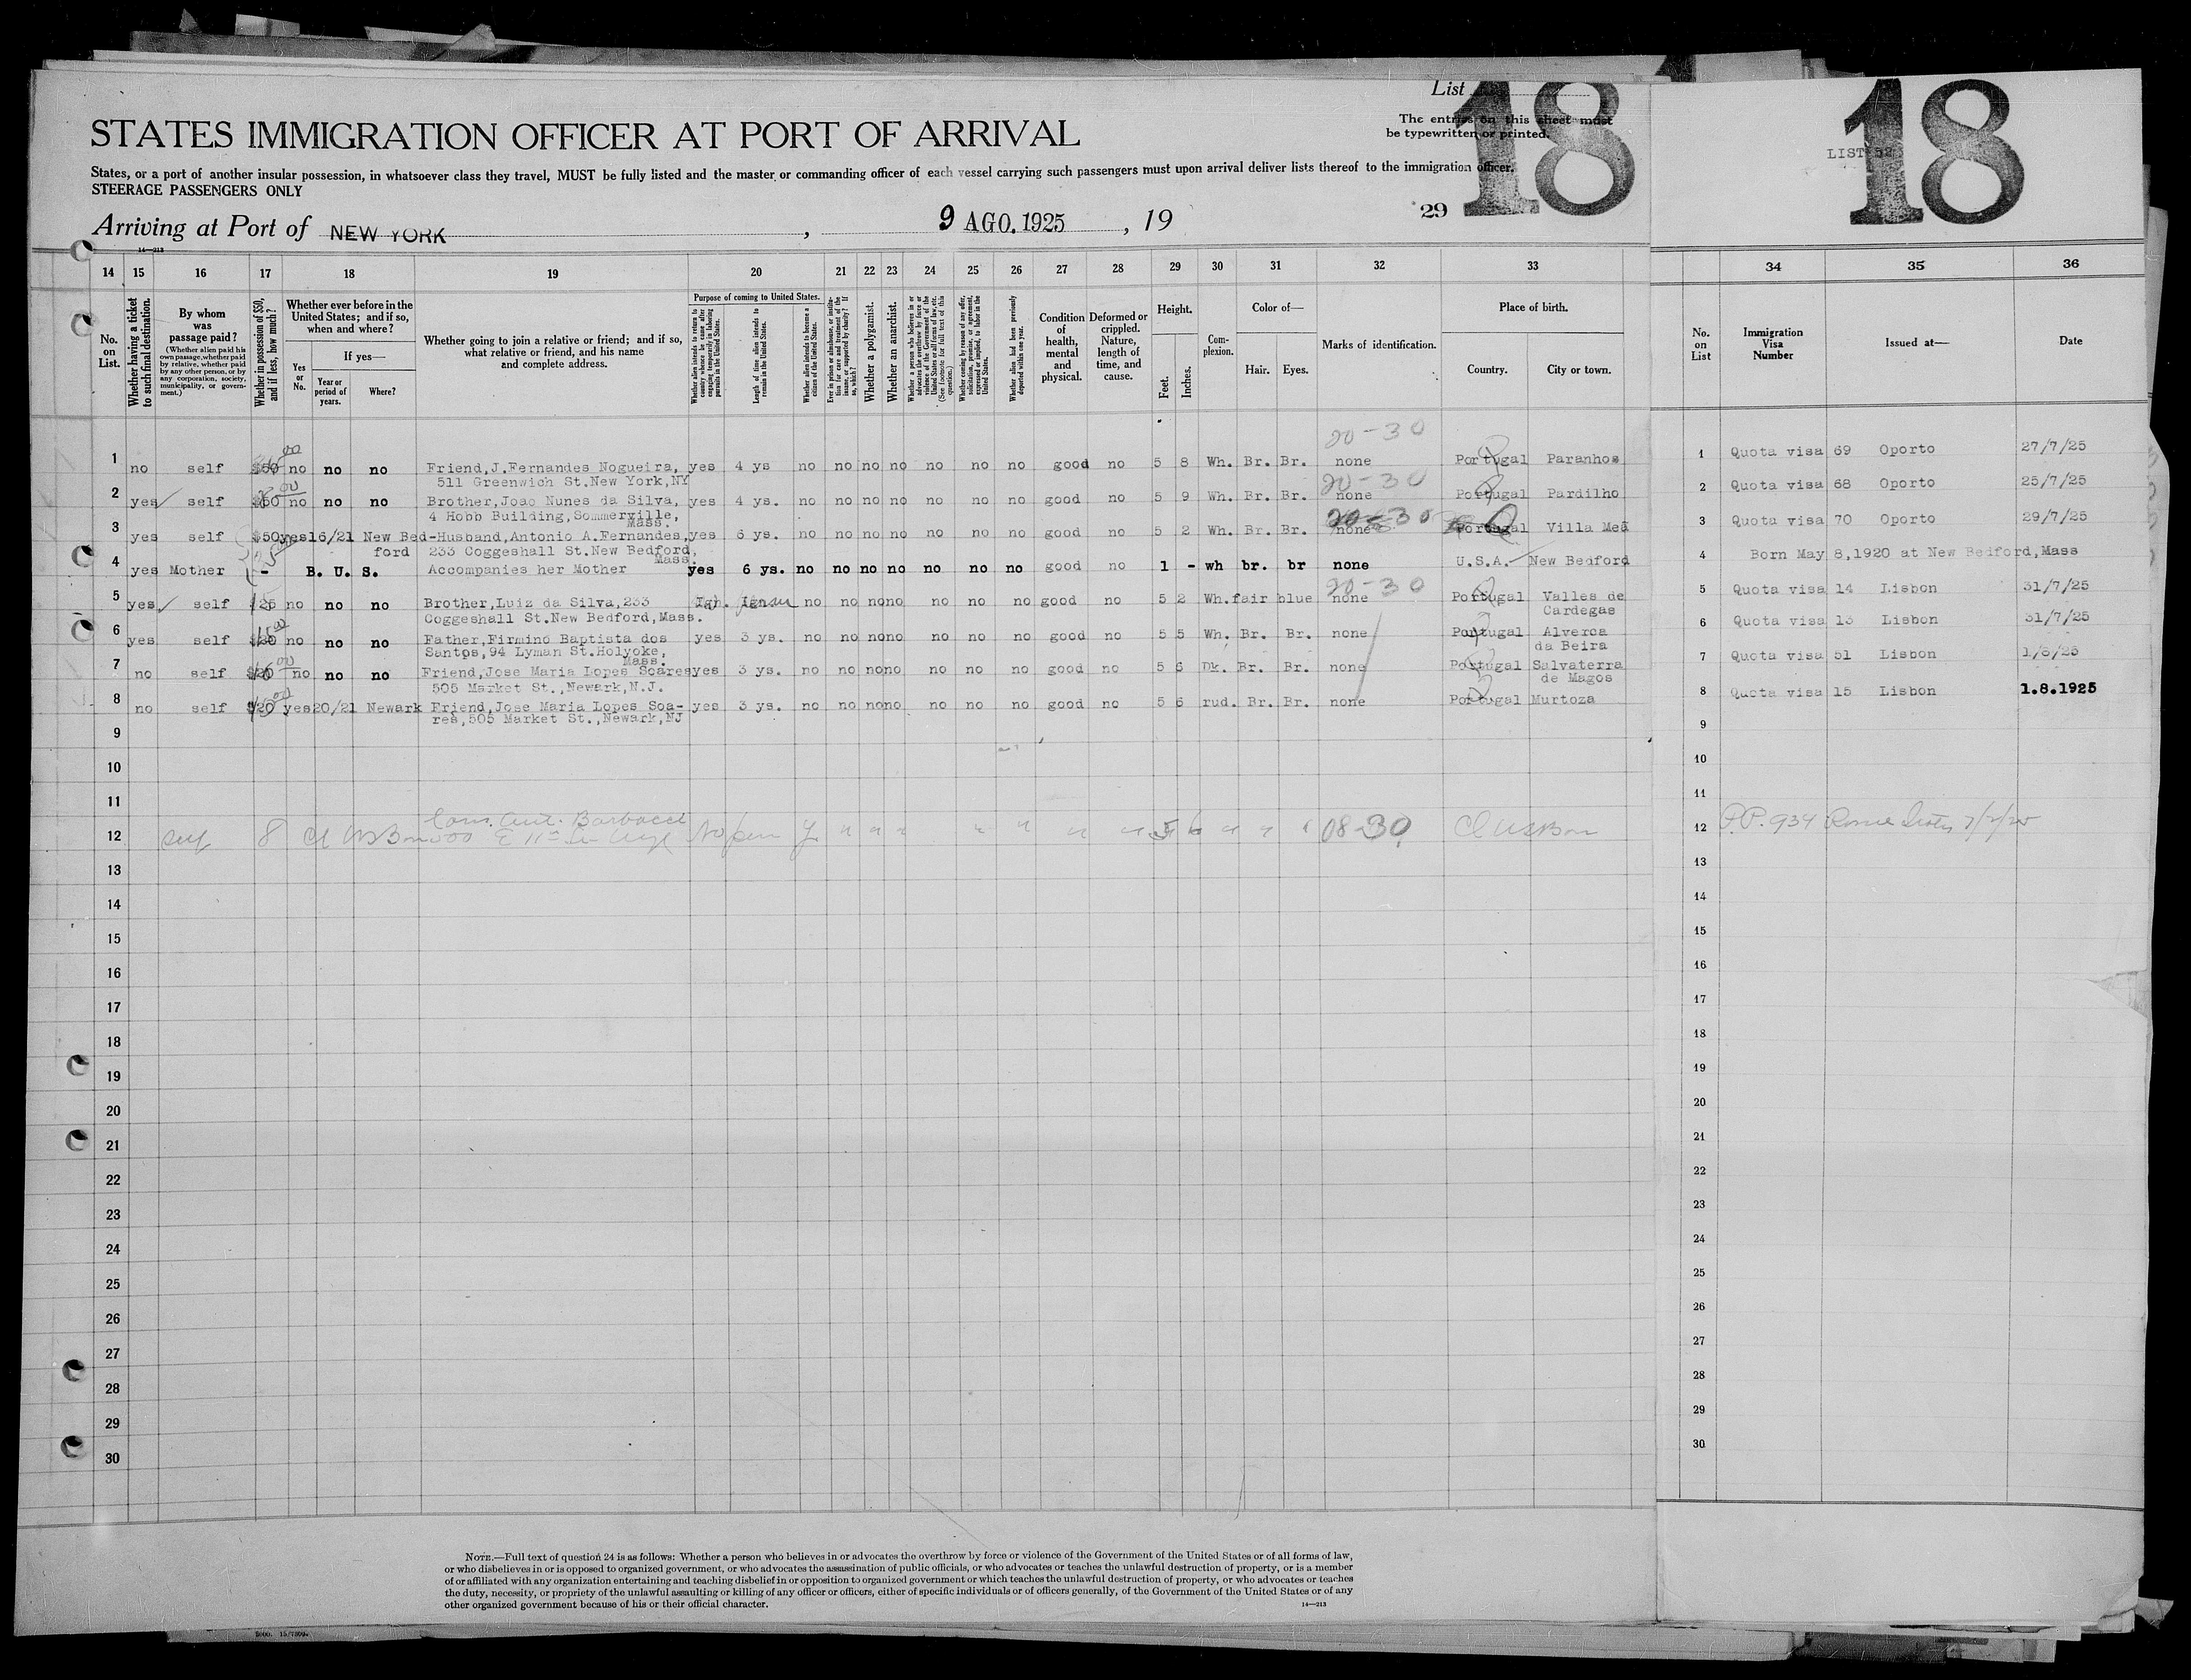 List
18
The entries on this sheet must
be typewritten or printed.
18
LIST 52
STATES IMMIGRATION OFFICER AT PORT OF ARRIVAL
States, or a port of another insular possession, in whatsoever class they travel, MUST be fully listed and the master or commanding officer of each vessel carrying such passengers must upon arrival deliver lists thereof to the immigration officer.
STEERAGE PASSENGERS ONLY
Arriving at Port of NEW YORK , 9 AGO. 1925 , 19
29
14—213
14 15 16 17 18 19 20 21 22 23 24 25 26 27 28 29 30 31 32 33 34 35 36
No. on List.
Whether having a ticket to such final destination.
By whom was passage paid?
(Whether alien paid his own passage, whether paid by relative, whether paid by any other person, or by any corporation, society, municipality, or government.)
Whether in possession of $50, and if less, how much?
Whether ever before in the United States; and if so, when and where?
Yes or No.
If yes—
Year or period of years.
Where?
Whether going to join a relative or friend; and if so, what relative or friend, and his name and complete address.
Purpose of coming to United States.
Whether alien intends to return to country whence he came after engaging temporarily in laboring pursuits in the United States.
Length of time alien intends to remain in the United States.
Whether alien intends to become a citizen of the United States.
Ever in prison or almshouse, or institution for care and treatment of the insane, or supported by charity? If so, which?
Whether a polygamist.
Whether an anarchist.
Whether a person who believes in or advocates the overthrow by force or violence of the Government of the United States or all forms of law, etc. (See footnote for full text of this question.)
Whether coming by reason of any offer, solicitation, promise, or agreement, expressed or implied, to labor in the United States.
Whether alien had been previously deported within one year.
Condition of health, mental and physical.
Deformed or crippled. Nature, length of time, and cause.
Height.
Feet.
Inches.
Complexion.
Color of—
Hair.
Eyes.
Marks of identification.
Place of birth.
Country.
City or town.
No. on List
Immigration Visa Number
Issued at—
Date
20-30
1 no self $50 no no no Friend,J.Fernandes Nogueira, yes 4 ys no no no no no no no good no 5 8 Wh. Br. Br. none Portugal Paranhos 1 Quota visa 69 Oporto 27/7/25
511 Greenwich St.New York,NY
20-30
2 yes self $50 no no no Brother,Joao Nunes da Silva, yes 4 ys. no no no no no no no good no 5 9 Wh. Br. Br. none Portugal Pardilho 2 Quota visa 68 Oporto 25/7/25
4 Hobb Building,Sommerville,
Mass.
20-30
3 yes self $50 yes 16/21 New Bed-Husband,Antonio A.Fernandes, yes 6 ys. no no no no no no no good no 5 2 Wh. Br. Br. none Portugal Villa Mea 3 Quota visa 70 Oporto 29/7/25
ford 233 Coggeshall St.New Bedford,
Mass.
4 yes Mother - B. U. S. Accompanies her Mother yes 6 ys. no no no no no no no good no 1 - wh br. br none U.S.A. New Bedford 4 Born May 8,1920 at New Bedford,Mass
20-30
5 yes self $25 no no no Brother,Luiz da Silva,233 no no no no no no no good no 5 2 Wh. fair blue none Portugal Valles de 5 Quota visa 14 Lisbon 31/7/25
Coggeshall St.New Bedford,Mass. Cardegas
6 yes self $20 no no no Father,Firmino Baptista dos yes 3 ys. no no no no no no no good no 5 5 Wh. Br. Br. none Portugal Alverca 6 Quota visa 13 Lisbon 31/7/25
Santos,94 Lyman St.Holyoke, da Beira
Mass.
7 no self $20 no no no Friend,Jose Maria Lopes Soares yes 3 ys. no no no no no no no good no 5 6 Dk. Br. Br. none Portugal Salvaterra 7 Quota visa 51 Lisbon 1/8/25
505 Market St.,Newark,N.J. de Magos
8 no self $20 yes 20/21 Newark Friend,Jose Maria Lopes Soa- yes 3 ys. no no no no no no no good no 5 6 rud. Br. Br. none Portugal Murtoza 8 Quota visa 15 Lisbon 1.8.1925
res,505 Market St.,Newark,NJ
9 9
10 10
11 11
12 self 8 Barbacci 5 6 08-30 12 P.P. 934 Rome
13 13
14 14
15 15
16 16
17 17
18 18
19 19
20 20
21 21
22 22
23 23
24 24
25 25
26 26
27 27
28 28
29 29
30 30
NOTE.—Full text of question 24 is as follows: Whether a person who believes in or advocates the overthrow by force or violence of the Government of the United States or of all forms of law,
or who disbelieves in or is opposed to organized government, or who advocates the assassination of public officials, or who advocates or teaches the unlawful destruction of property, or is a member
of or affiliated with any organization entertaining and teaching disbelief in or opposition to organized government or which teaches the unlawful destruction of property, or who advocates or teaches
the duty, necessity, or propriety of the unlawful assaulting or killing of any officer or officers, either of specific individuals or of officers generally, of the Government of the United States or of any
other organized government because of his or their official character.
14—213